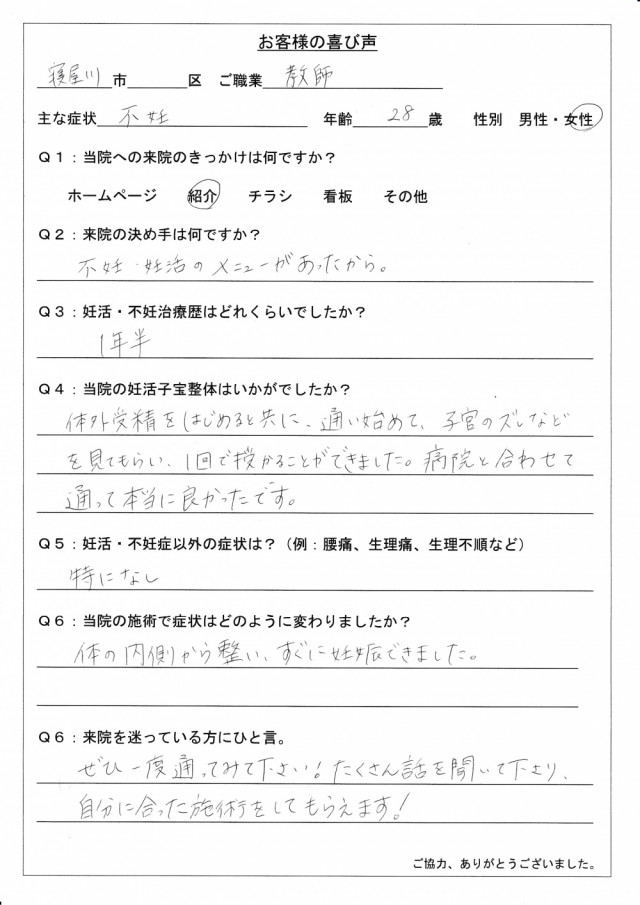 お客様の喜び声
寝屋川市 区 ご職業 教師
主な症状 不妊 年齢 28 歳 性別 男性・女性
Q1:当院への来院のきっかけは何ですか?
ホームページ 紹介 チラシ 看板 その他
Q2:来院の決め手は何ですか?
不妊・妊活のメニューがあったから。
Q3:妊活・不妊治療歴はどれくらいでしたか?
1年半
Q4:当院の妊活子宝整体はいかがでしたか?
体外受精をはじめると共に、通い始めて、子宮のズレなど
を見てもらい、1回で授かることができました。病院と合わせて
通って本当に良かったです。
Q5:妊活・不妊症以外の症状は?(例:腰痛、生理痛、生理不順など)
特になし
Q6:当院の施術で症状はどのように変わりましたか?
体の内側から整い、すぐに妊娠できました。
Q6:来院を迷っている方にひと言。
ぜひ一度通ってみて下さい!たくさん話を聞いて下さり、
自分に合った施術をしてもらえます!
ご協力、ありがとうございました。